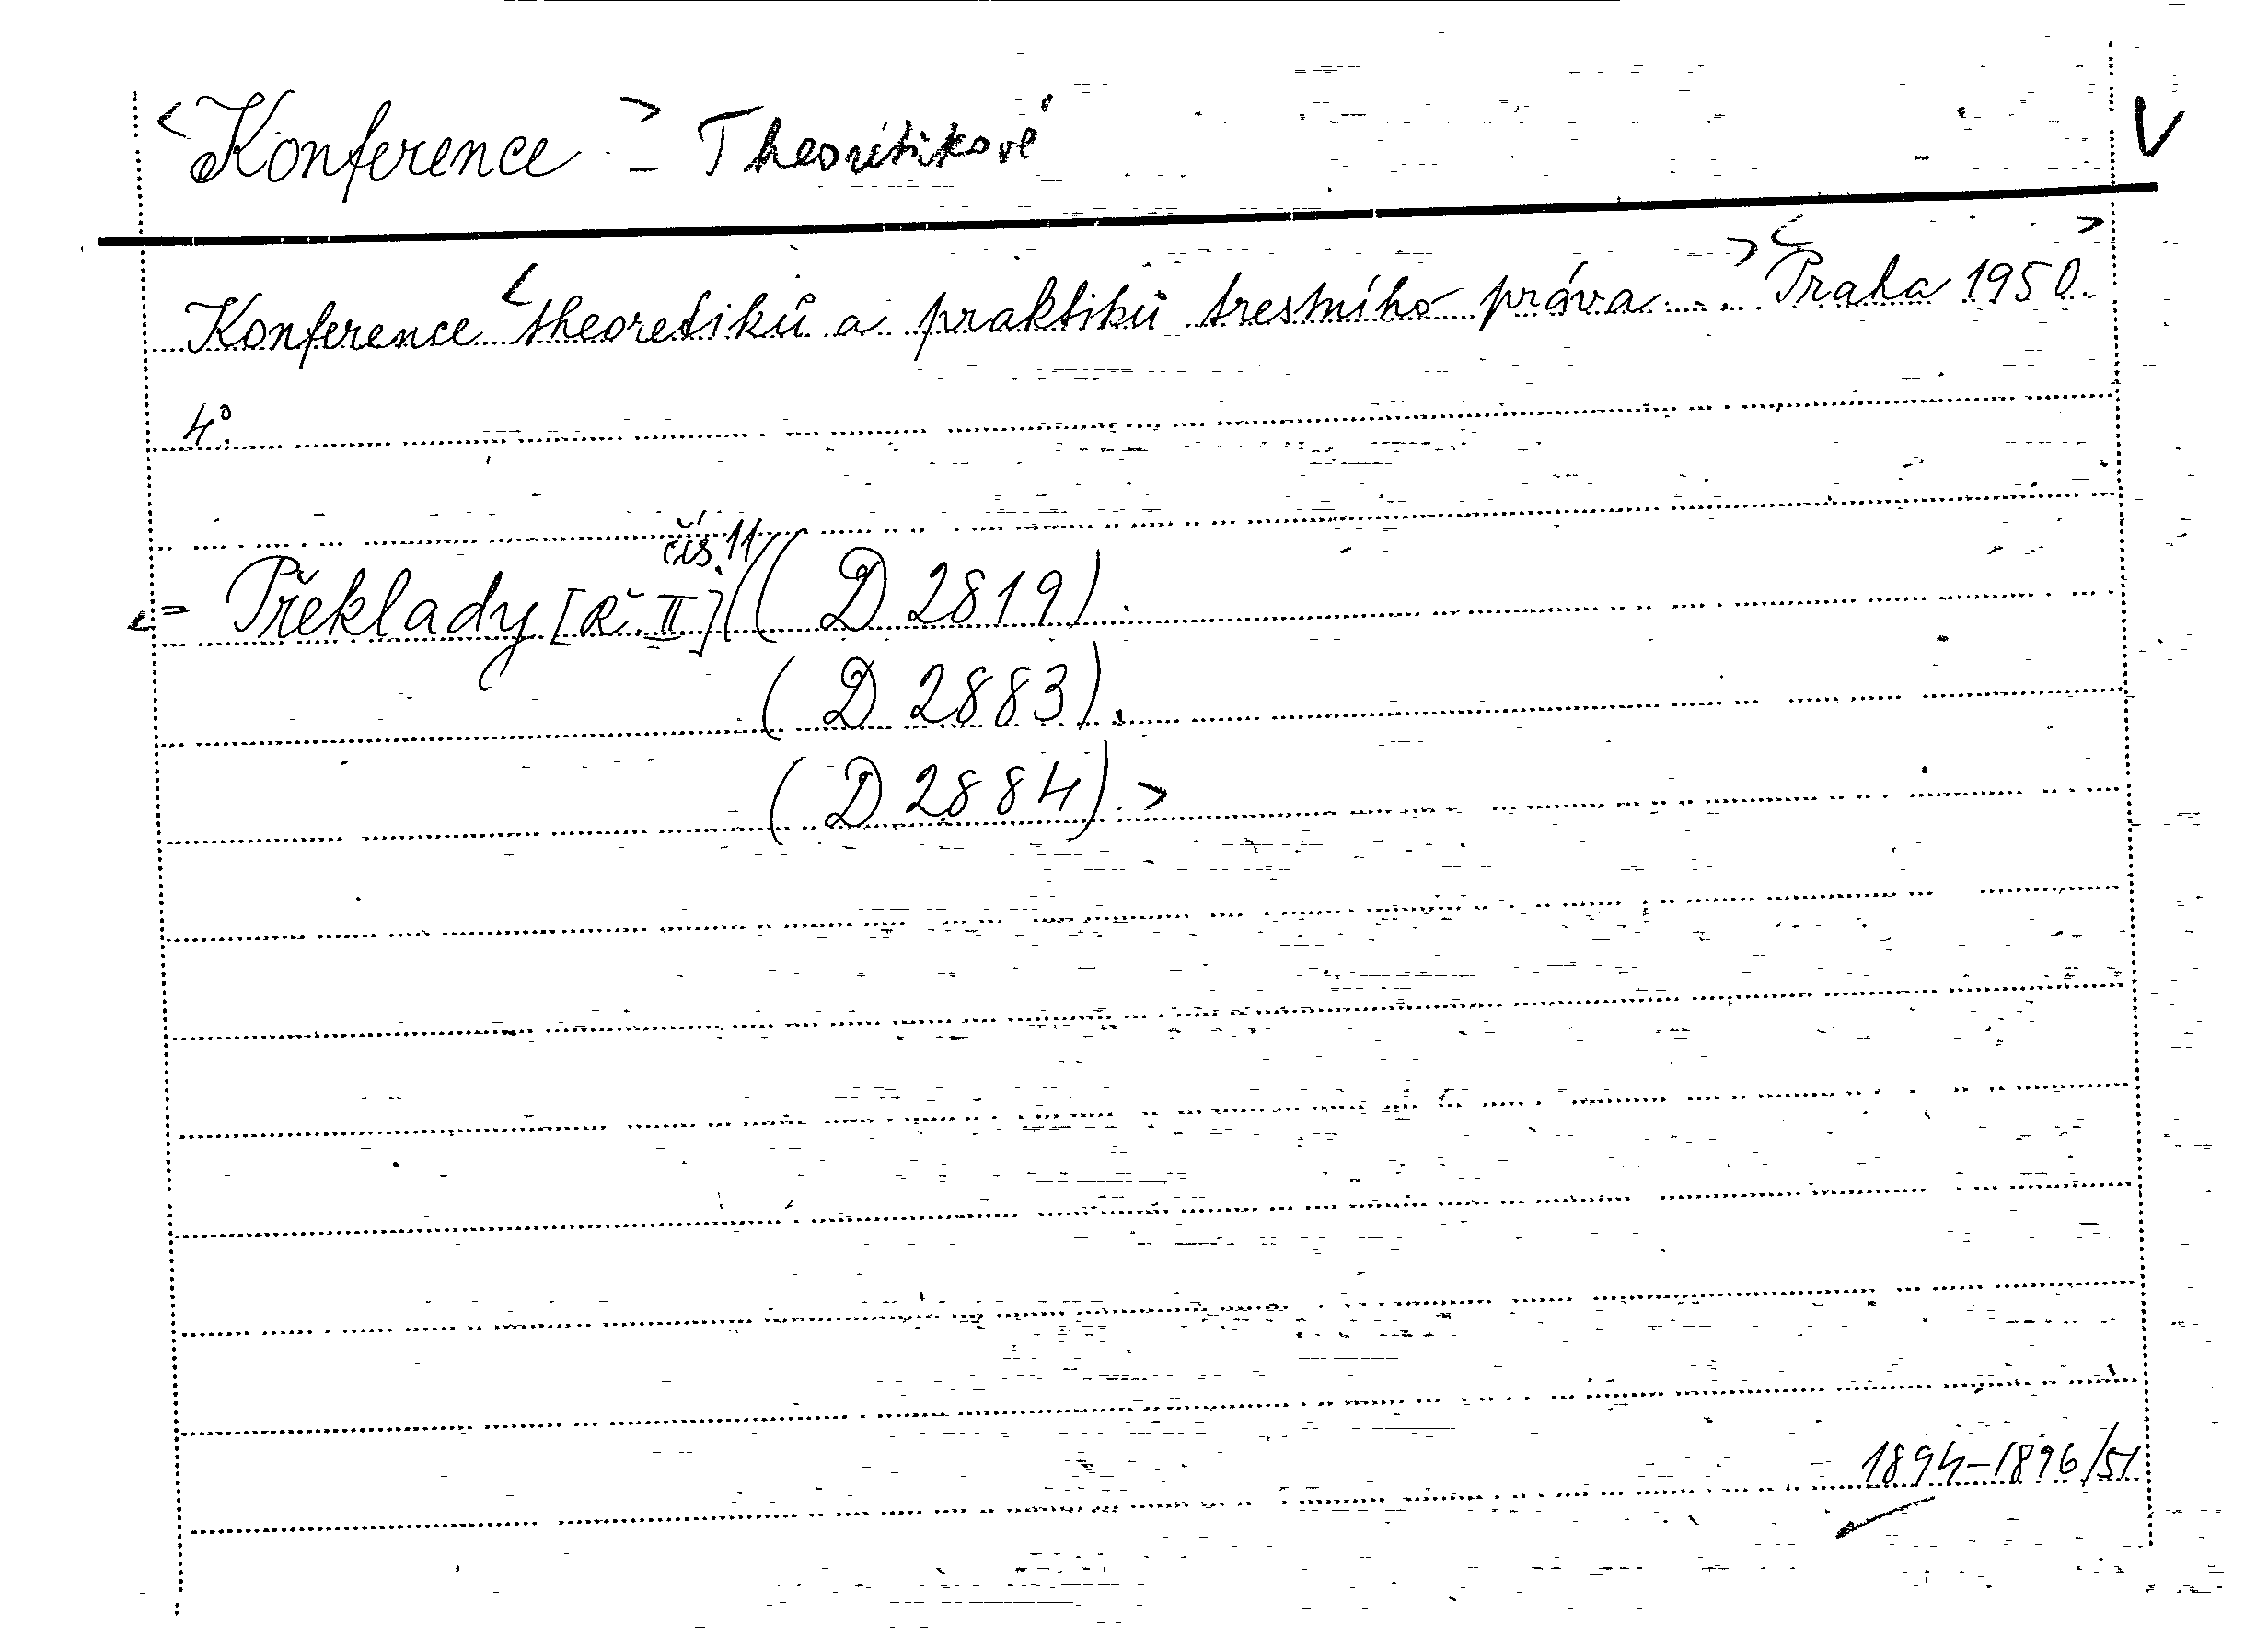 <Konference> - Theoretikové V
Konference <theoretiků a praktiků trestního práva...> <Praha 1950.>
4°.
<= Překlady [Ř. II] čís. 11/ (D 2819).
(D 2883).
(D 2884).>
1894-1896/51